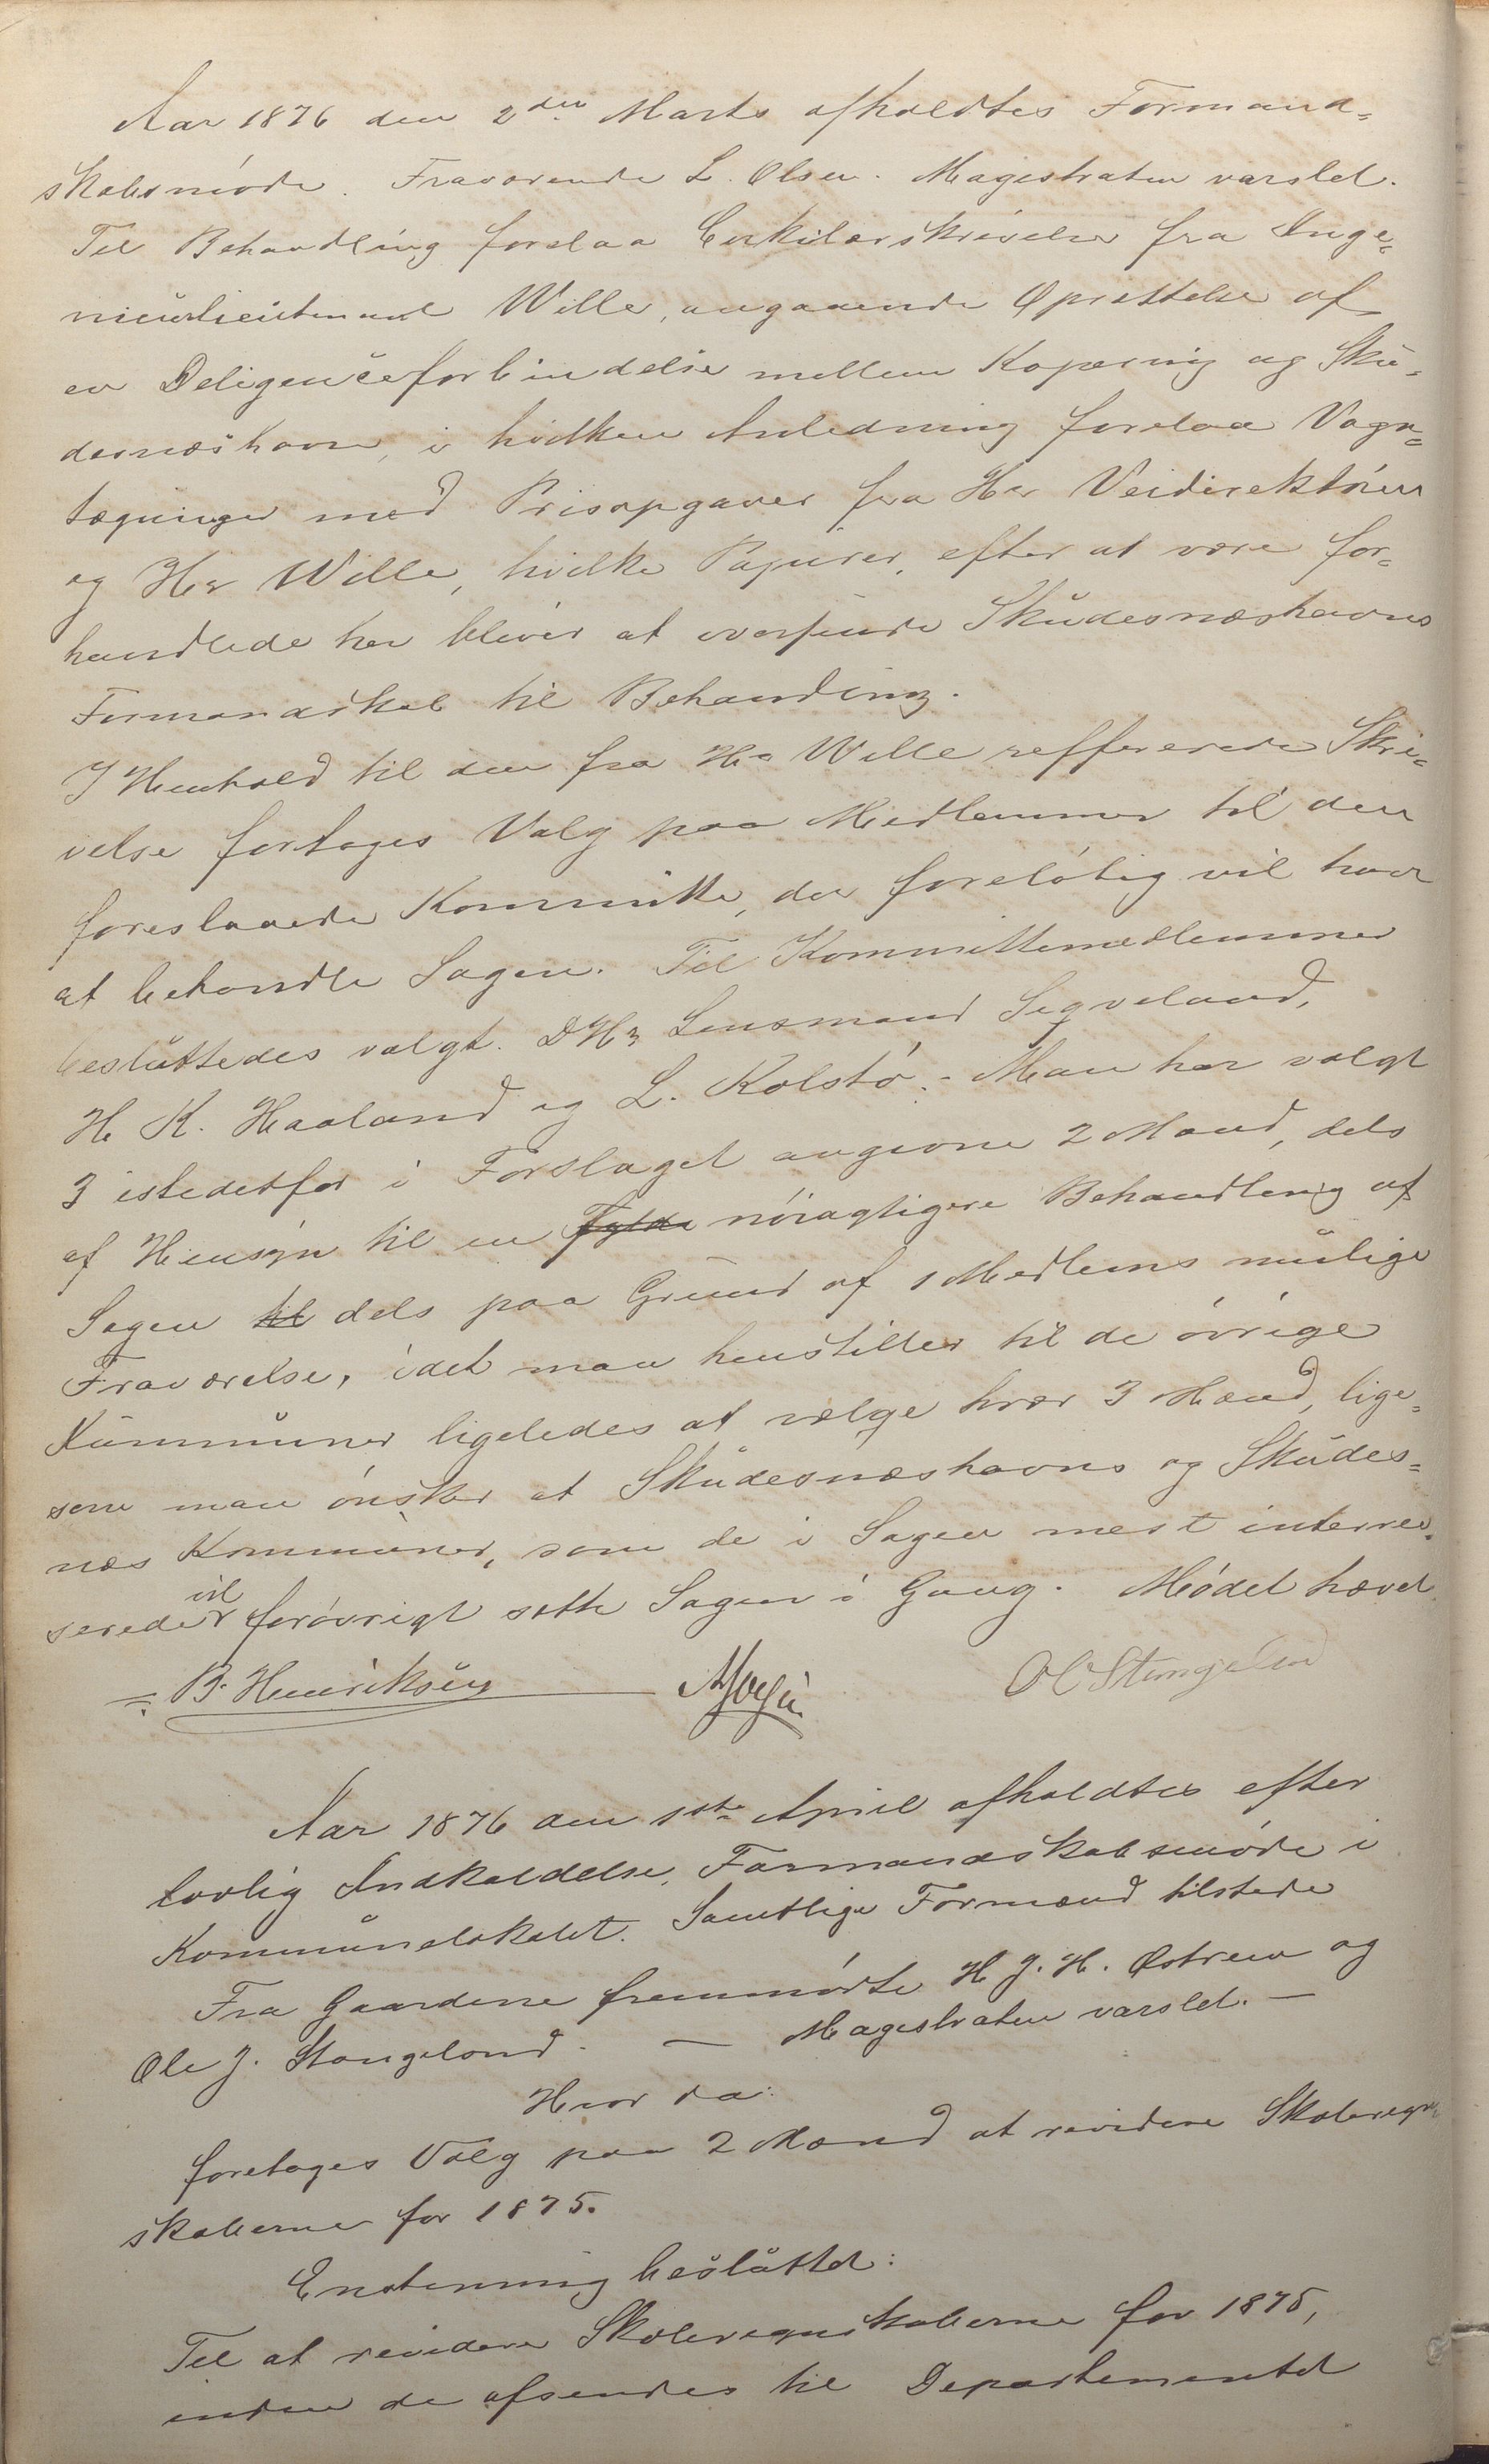 Aar 1876 den 2den Marts afholdtes Formand=
skabsmøde. Fraværende L. Olsen. Magistraten varslet.
Til Behandling forelaa Cirkulærskrivelse fra Inge=
nieurlieutenant Wille, angaaende Oprettelse af
en Deligenceforbindelse mellem Kopervig og Sku=
desnæshavn, i hvilken Anledning forelaa Vogn=
tegninger med Prisopgaver fra Hr Veidirektøren
og Hr Wille, hvilke Papirer, efter at være for=
handlede her bliver at oversende Skudesnæshavns
Formandskab til Behandling.
I Henhold til den fra Hr Wille reffererede Skri=
velse fortages Valg paa Medlemmer til den
foreslaaede Kommitte, der foreløbig vil have
at behandle Sagen. Til Kommittemedlemmer
besluttedes valgt. DHr Lensmand Sigveland,
H. K. Haaland og L. Kolstø. - Man har valgt
3 istedetfor i Forslaget angivne 2 Mand, dels
af Hensyn til en fylde nøiagtigere Behandling af
Sagen til dels paa Grund af 1 Medlems mulige
Fraværelse, idet man henstiller til de øvrige
Kummuner ligeledes at vælge hver 3 Mænd, lige=
som man ønsker at Skudesnæshavns og Skudes=
næs Kommuner, som de i Sagen mest interres=
serede vil forøvrigt sætte Sagen i Gang. Mødet hævet.
B. Henriksen O C Stangeland
Aar 1876 den 1ste April afholdtes efter
lovlig Indkaldelse, Formandskabsmøde i
Kommunelokalet. Samtlige Formænd tilstede
Fra Gaardene fremmødte H J. H. Østrem og
Ole J. Stangeland. — Magistraten varslet. —
Hvor da:
foretoges Valg paa 2 Mænd at revidere Skoleregn=
skaberne for 1875.
Enstemmig besluttet:
Til at revidere Skoleregnskaberne for 1875,
inden de afsendes til Departementet